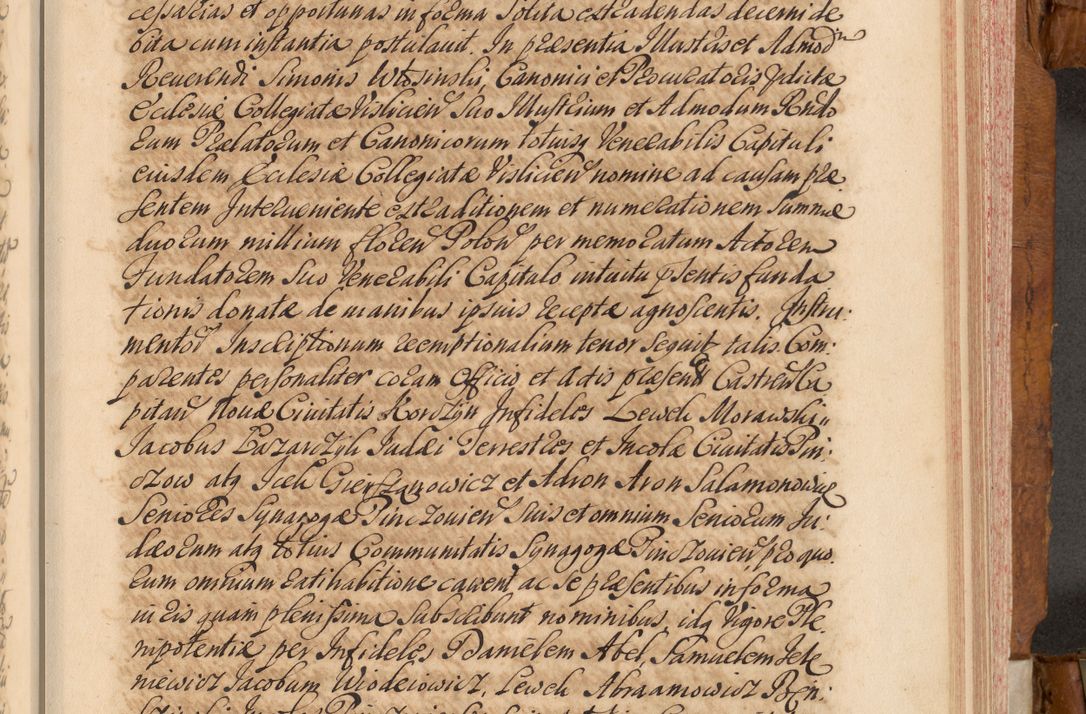 cessarias et opportunas in forma solita extradendas decerni de
bita cum instantia postulavit. In præsentia Illustris et Admodm
Reverendi Simonis Wosinski, Canonici et Procuratoris prædictæ
Ecclesiæ Collegiatæ Vislicien suo Illustrium et Admodum Rndo
rum Prælatorum et Canonicorum totiusq Venerabilis Capituli
eiusdem Ecclesiæ Collegiatæ Vislicien nomine ad causam præ
sentem Interveniente extraditionem et numerationem summæ
duorum millium floren Polon per memoratum Actorem
Fundatorem suo Venerabili Capitulo intuitu psentis funda
tionis donatæ de manibus ipsius receptæ agnoscentis. Instru:
mentor Inscriptionum reemptionalium tenor sequit talis. Com:
parentes personaliter coram Officio et Actis præsen Castren Ca
pitan Novæ Civitatis Korczyn Infideles Lewek Morawski,,
Jacobus Lazarczyk Judæi Terrestres et Incolæ Civitatis Pin:
czow atq Icek Gierszanowicz et Adron Aron Salamonowicz
Seniores Synagogæ Pinczovien suis et omnium Seniorum Ju:
dæorum atq totius Communitatis Synagogæ Pinczovien, pro quo
rum omnium ratihabitione cavent ac se præsentibus in forma
iuris quam plenissima subscribunt nominibus, idq vigore Ple
nipotentiæ per Infideles Danielem Abel, Samuelem Jele
niewicz Jacobum Wiodeiowicz, Lewek Abraamowicz Boen: